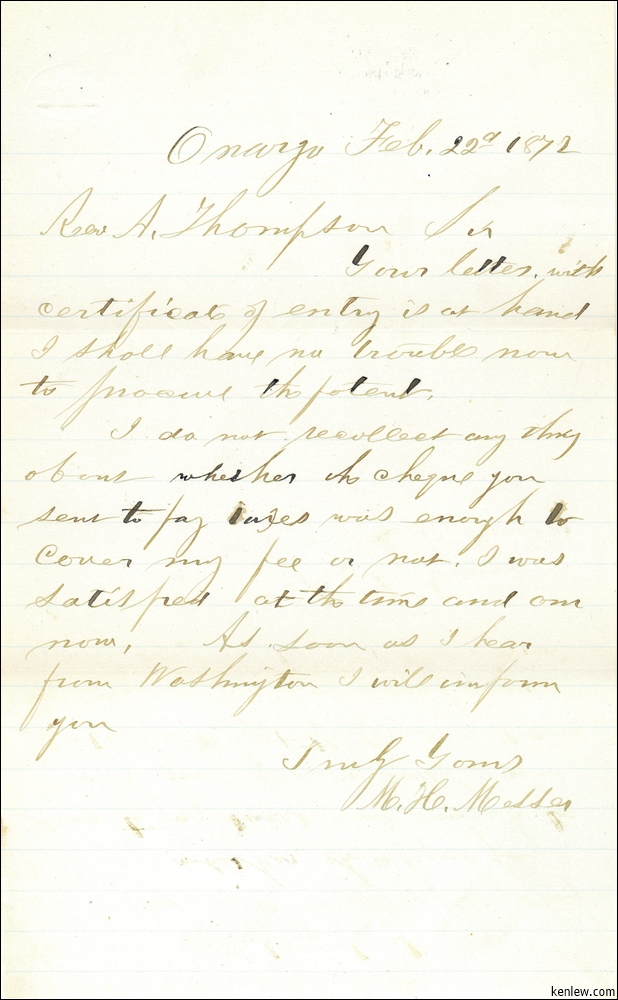 Onarga Feb. 22d 1872
Rev A. Thompson Sir
Your letter, with
certificate of entry is at hand
I shall have no trouble now
to procure the patent.
I do not recollect any thing
about whether the cheque you
sent to pay taxes was enough to
cover my fee or not. I was
satisfied at the time and am
now. As soon as I hear
from Washington I will inform
you
Truly Yours
M. H. Messer
kenlew.com